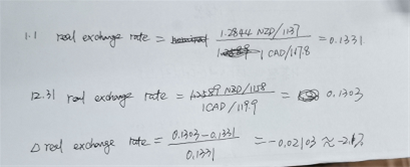 1.1 real exchange rate = 1.2844 NZD/1137 / 1 CAD/107.8 = 0.1331
12.31 real exchange rate = 1.2589 NZD/1158 / 1 CAD/119.9 = 0.1303
Δ real exchange rate = 0.1303-0.1331 / 0.1331 = -0.02103 ≈ -2.1%